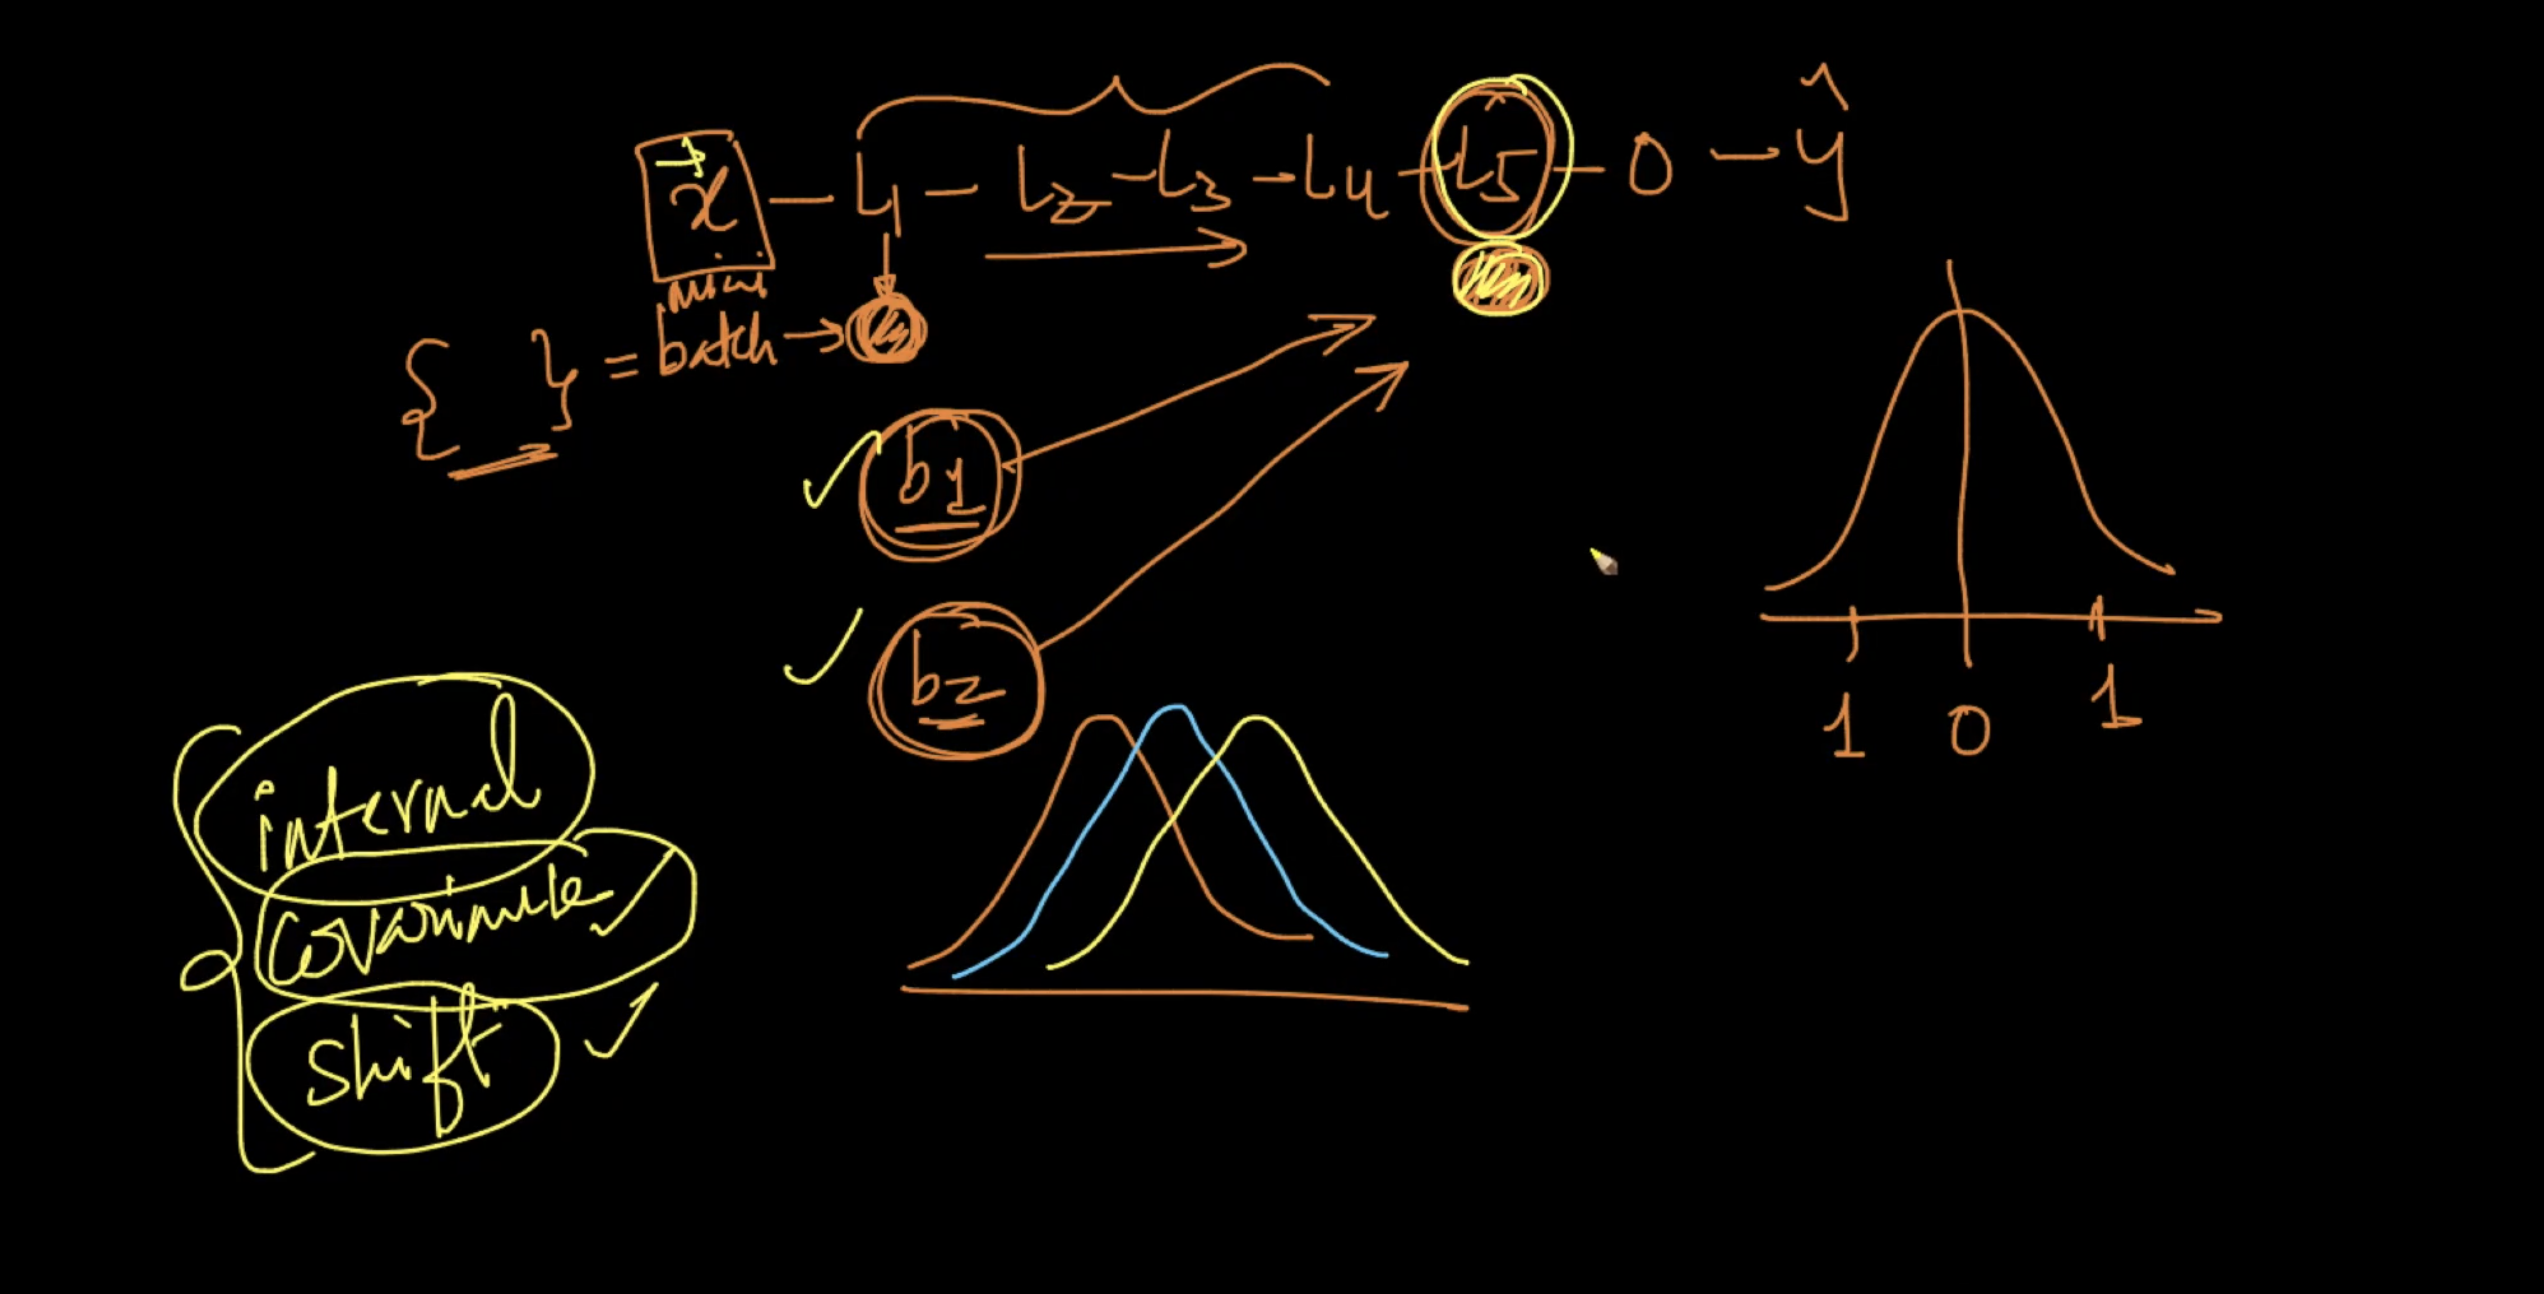 x - L1 - L2 - L3 - L4 - L5 - O - ŷ
mini
{ } = batch →
b1
b2
1 0 1
internal
covariate
shift